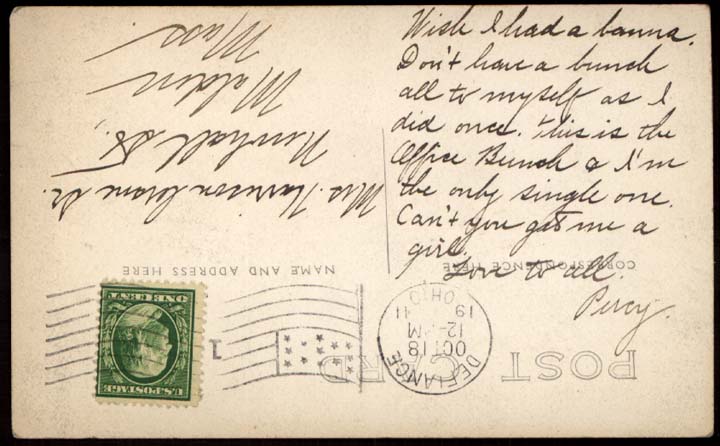 Wish I had a banna.
Don't have a bunch
all to myself as I
did once. This is the
Office Bunch & I'm
the only single one.
Can't you get me a
girl.
Love to all.
Percy.
POST CARD
CORRESPONDENCE HERE
NAME AND ADDRESS HERE
DEFIANCE
OCT 18
12-M
19 11
OHIO
1
U.S. POSTAGE
ONE CENT
Mrs. Harrison Crane Sr.
Newhall St.,
Malden
Mass.